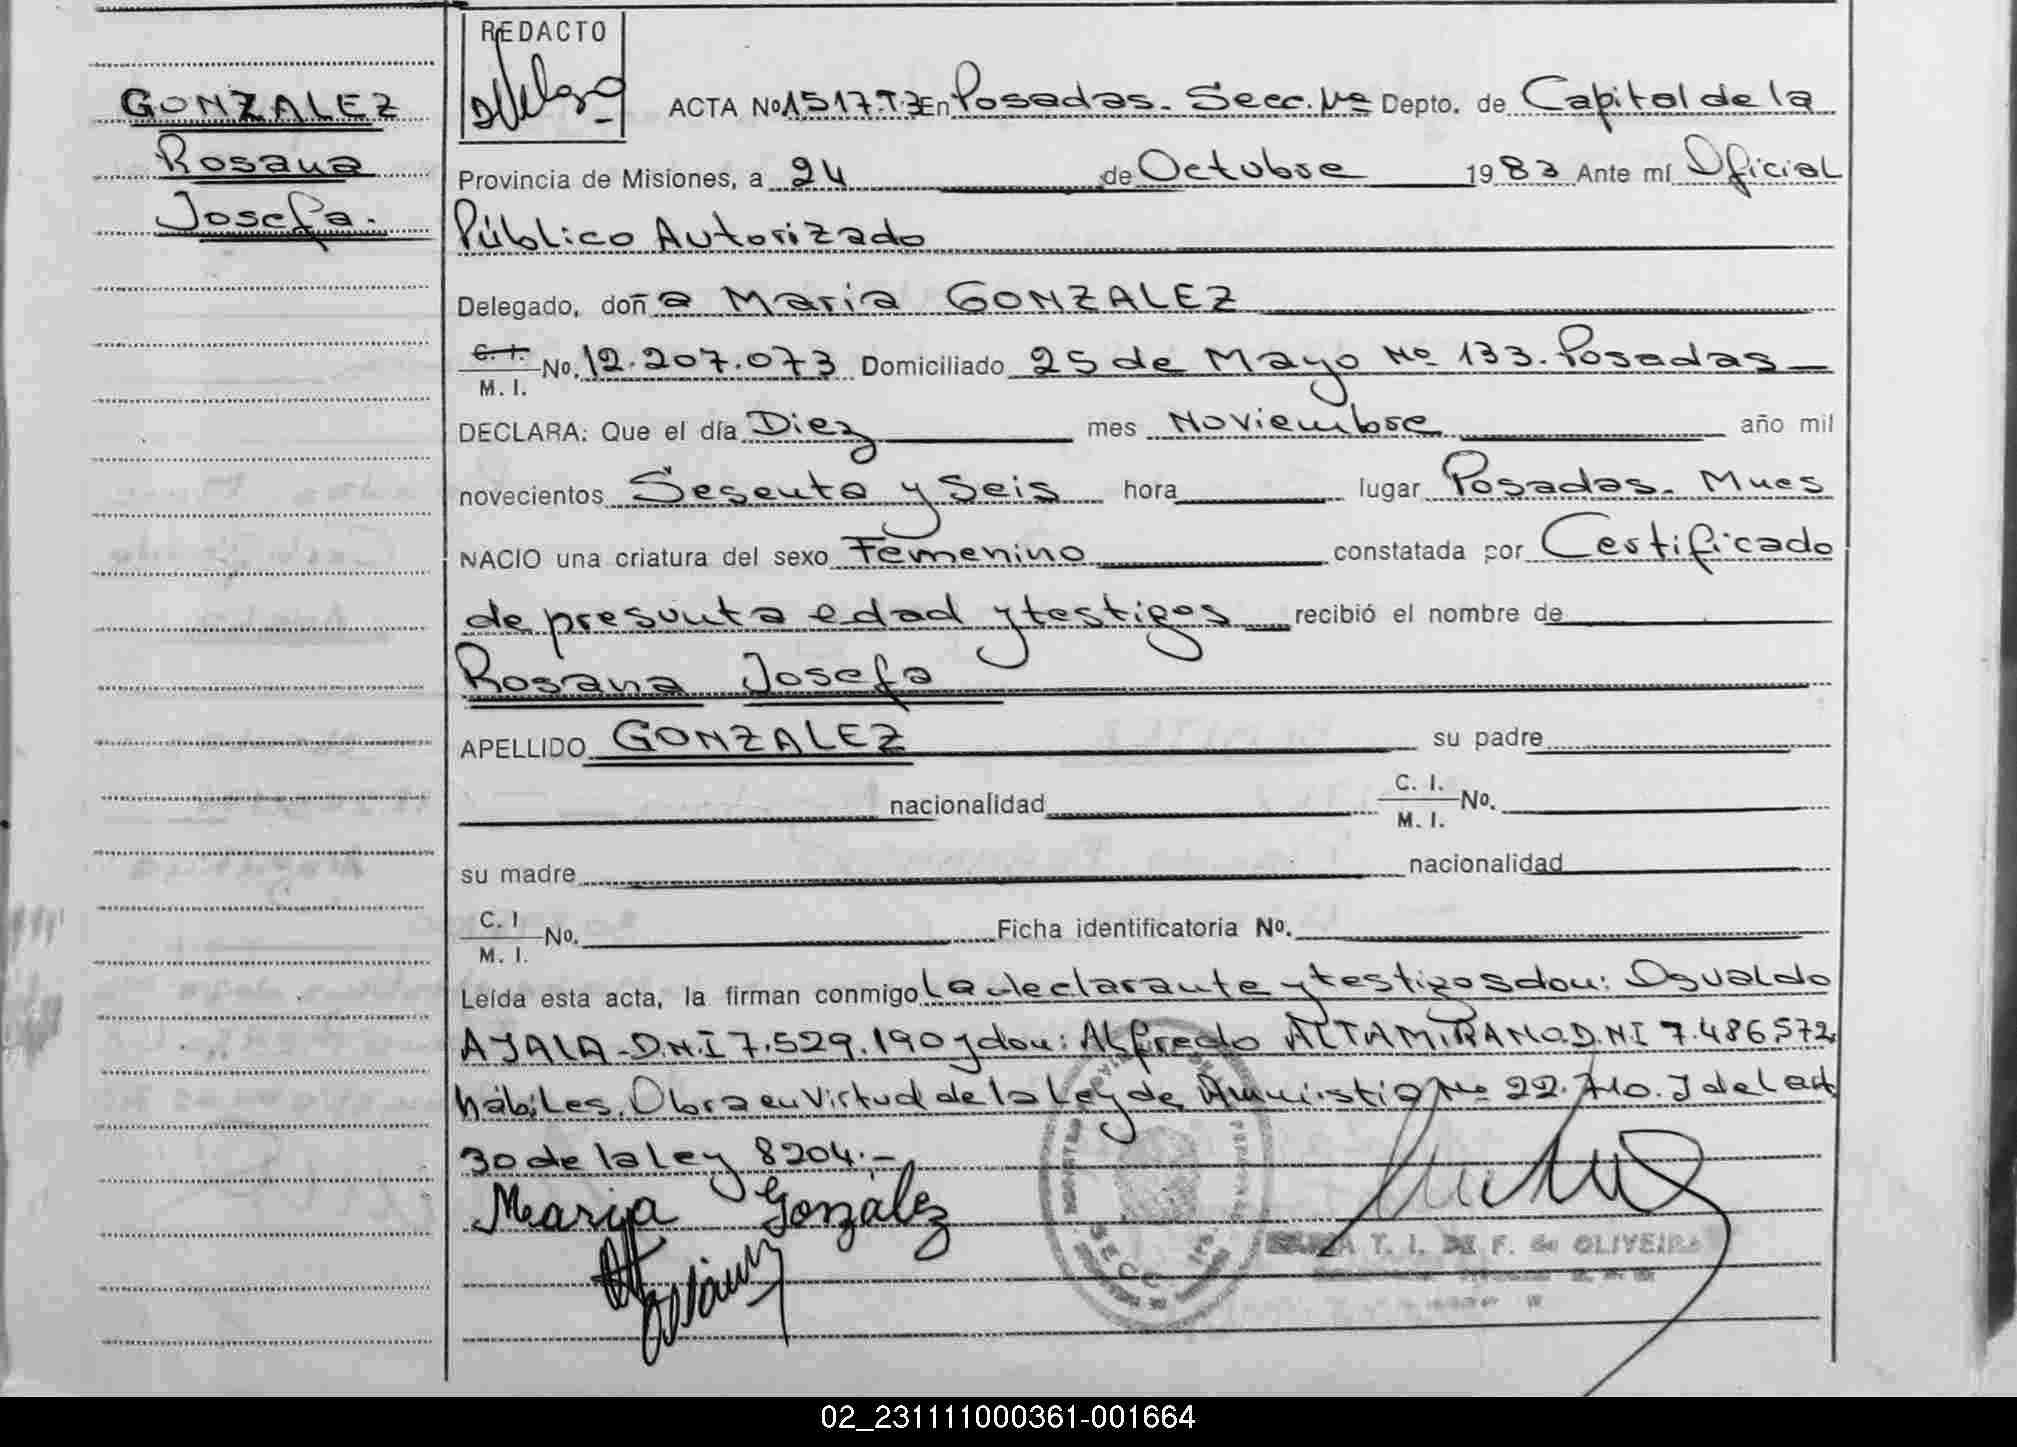 GONZALEZ
Rosana
Josefa.
REDACTO
ACTA No 1517.T.3 En Posadas. Secc. 1ra Depto. de Capital de la
Provincia de Misiones, a 24 de Octubre 1983 Ante mí Oficial
Público Autorizado
Delegado, doña Maria GONZALEZ
C. I. M. I. No. 12.207.073 Domiciliado 25 de Mayo Nº 133. Posadas
DECLARA: Que el día Diez mes Noviembre año mil
novecientos Sesenta y Seis hora lugar Posadas. Mnes
NACIO una criatura del sexo Femenino constatada por Certificado
de presunta edad y testigos recibió el nombre de
Rosana Josefa
APELLIDO GONZALEZ su padre
nacionalidad C. I. M. I. No.
su madre nacionalidad
C. I M. I. No. Ficha identificatoria No.
Leída esta acta, la firman conmigo La declarante y testigos don: Osvaldo
AYALA-D.N.I 7.529.190 y don: Alfredo ALTAMIRANO.D.NI 7.486,572
hábiles. Obra en Virtud de la Ley de Amnistia Nº 22.710. Y del art
30 de la Ley 8204.-
Maria Gonzalez
T. I. DE F. de OLIVEIRA
02_231111000361-001664